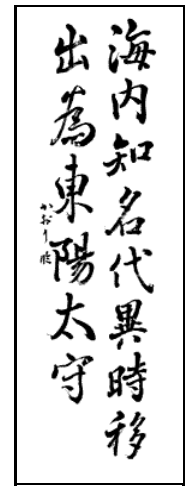 海内知名代異時移
出為東陽太守
かおり臨